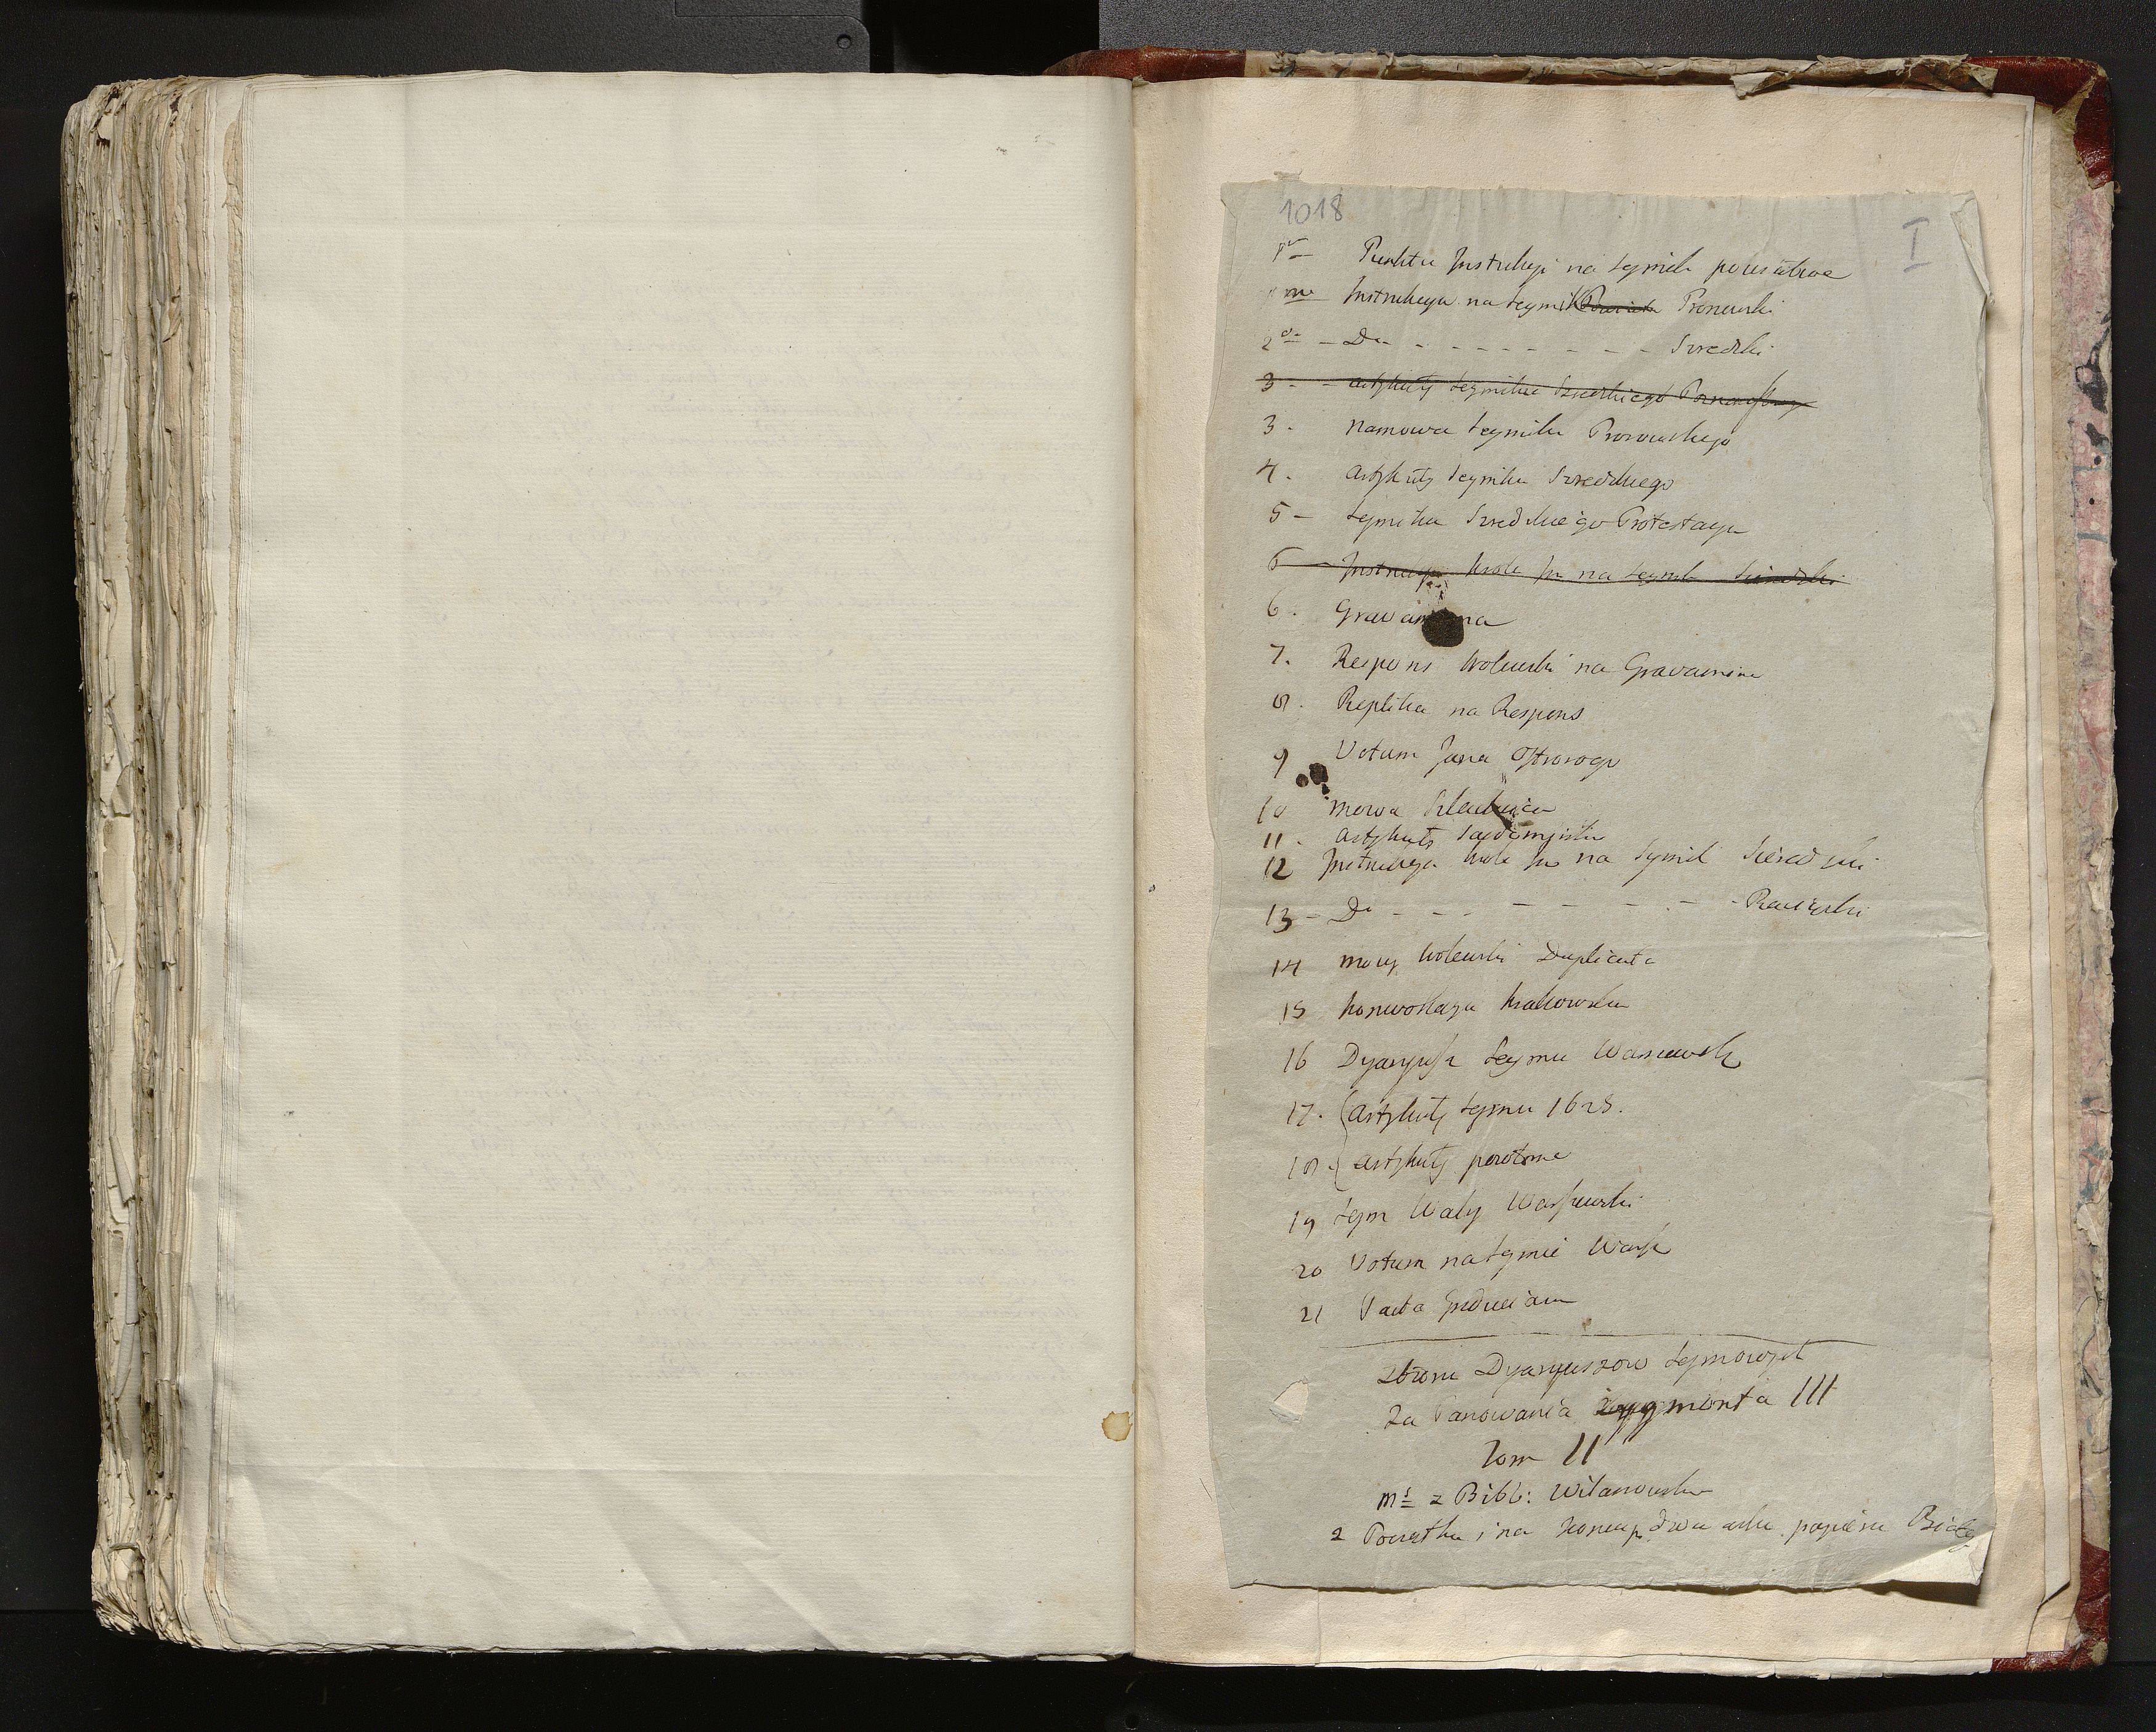 1018
I
Punkta Instrukcji na seymik powiatowe
Instrukcya na Seymik Powiatu Proszewski
2do - Do - - - - - - - - - Szredzki
3 - - Artykuły Seymiku Szredzkiego
3. Namowa Seymiku Proszowskiego
4. Artykuły Seymiku Szredzkiego
5 - Seymiku Szredzkiego Protestacya
6 Instrukcya Krole Jm na seymik Sieradzki
6. Gravamina
7. Respons Krolewski na Gravamina
8. Replika na Respons
9 Votum Jana Ostroroga
10 Mowa
11. Artykuły Sędomirskie
12 Instrukcya Krole Jm na Seymik Sieradzki
13 - Do - - - - - - - - Rawski
14 Mowy Krolewski Duplicata
15 Konwokacya Krakowska
16 Dyaryusz Seymu Warszawsk
17. Artykuły Seymu 1628.
18. Artykuły powtorne
19 Seym Walny Warszewski
20 Votum na Seymie Warsz
21 Pacta
Zbioru Dyaryuszow Seymowych
Za Panowania Zygmonta III
Tom II
Ms z Bibl: Wilanowskie
2 Początku i na końcu po dwa arku. papieru Biały